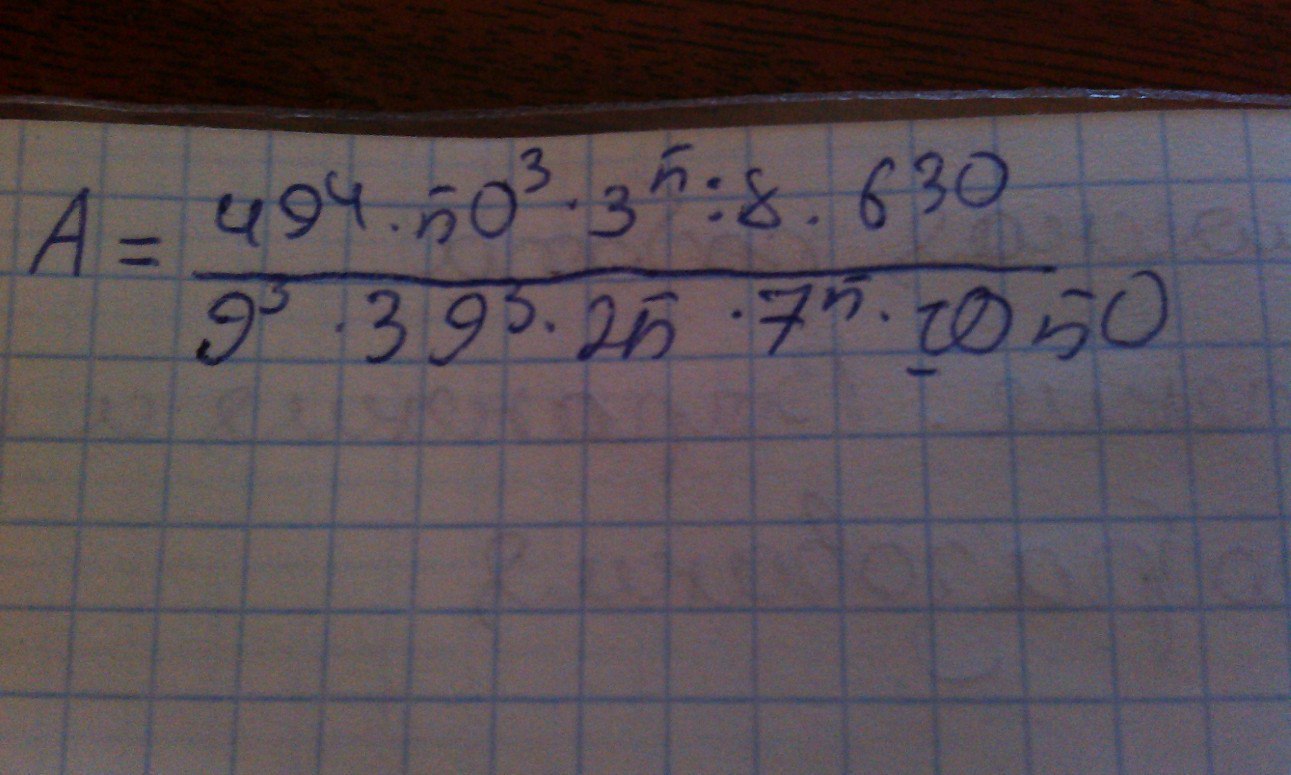 A = 49⁴ · 50³ · 3⁵ : 8 · 630
9³ · 39³ · 25 · 7⁵ · 1050